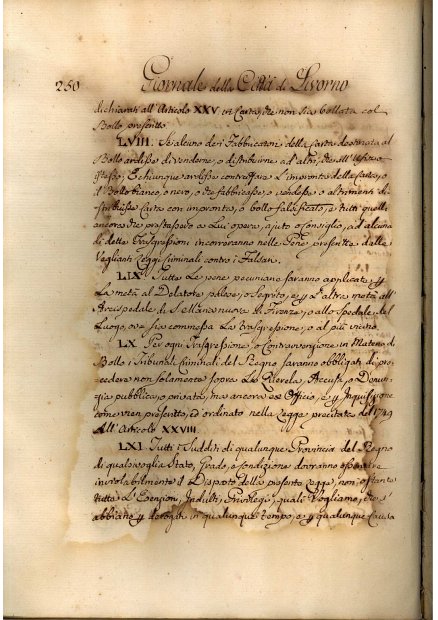 250 Giornale della Città di Livorno
dichiarati all'Articolo XXV in Carta, che non sia bollata col
Bollo prescritto.
LVIII. Se alcuno dei Fabbricatori della carta destinata al
Bollo ardisse di venderne, o distribuirne ad altri, che all'Ufizio
stesso; E chiunque ardisse contraffare L'impronta della Carta, o
il Bollo bianco, o nero, o che fabbricasse, o vendesse o altrimenti di-
stribuisse Carta con impronta, o bollo falsificato, e tutti quelli
ancora che prestassero a Lui opera, ajuto o Consiglio, ad alcuna
di dette Trasgressioni incorreranno nelle Pene prescritte dalle
Veglianti Leggi Criminali contro i Falsari.
LIX. Tutte Le pene pecuniarie saranno applicate p
La metà al Delatore palese, o Segreto, e p L'altra metà all'
Arcispedale di S. Maria nuova di Firenze, o allo Spedale del
Luogo, ove sia commessa La trasgressione, o al più vicino.
LX. Per ogni Trasgressione, o Contravenzione in Materia di
Bollo i Tribunali Criminali del Regno saranno obbligati di pro-
cedere non solamente sopra La Querela, Accusa, o Denun-
zia pubblica, o privata, ma ancora ex Officio, e p Inquisizione
come vien prescritto, ed ordinato nella Legge precitata del 1749
All'Articolo XXVIII.
LXI. Tutti i Sudditi di qualunque Provincia del Regno
di qualsivoglia Stato, Grado, e Condizione dovranno osservare
inviolabilmente il Disposto della presente Legge, non ostante
tutte L'Esenzioni, Indulti, Privilegj, quali Vogliamo, che s'
abbiano p derogati in qualunque tempo, e p qualunque Causa